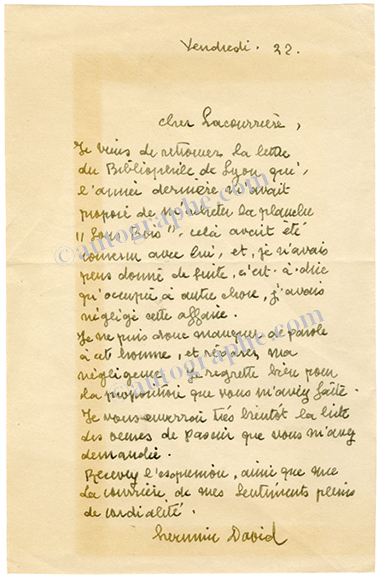 Vendredi. 22.
cher Lacourrière,
Je viens de retrouver la lettre
du Bibliophile de Lyon qui,
l'année dernière m'avait
proposé de m'acheter la planche
"Sous Bois", celà avait été
convenu avec lui, et, je n'avais
pas donné de suite, c'est-à-dire
qu'occupé à autre chose, j'avais
négligé cette affaire.
Je ne puis donc manquer de parole
à cet homme, et réparer ma
négligence. Je regrette bien pour
la proposition que vous m'aviez faite.
Je vous enverrai très bientôt la liste
des que vous m'avez
demandée.
Recevez l'expression, ainsi que Mme
Lacourrière, de mes sentiments pleins
de cordialité.
Hermine David
©autographe.com
©autographe.com